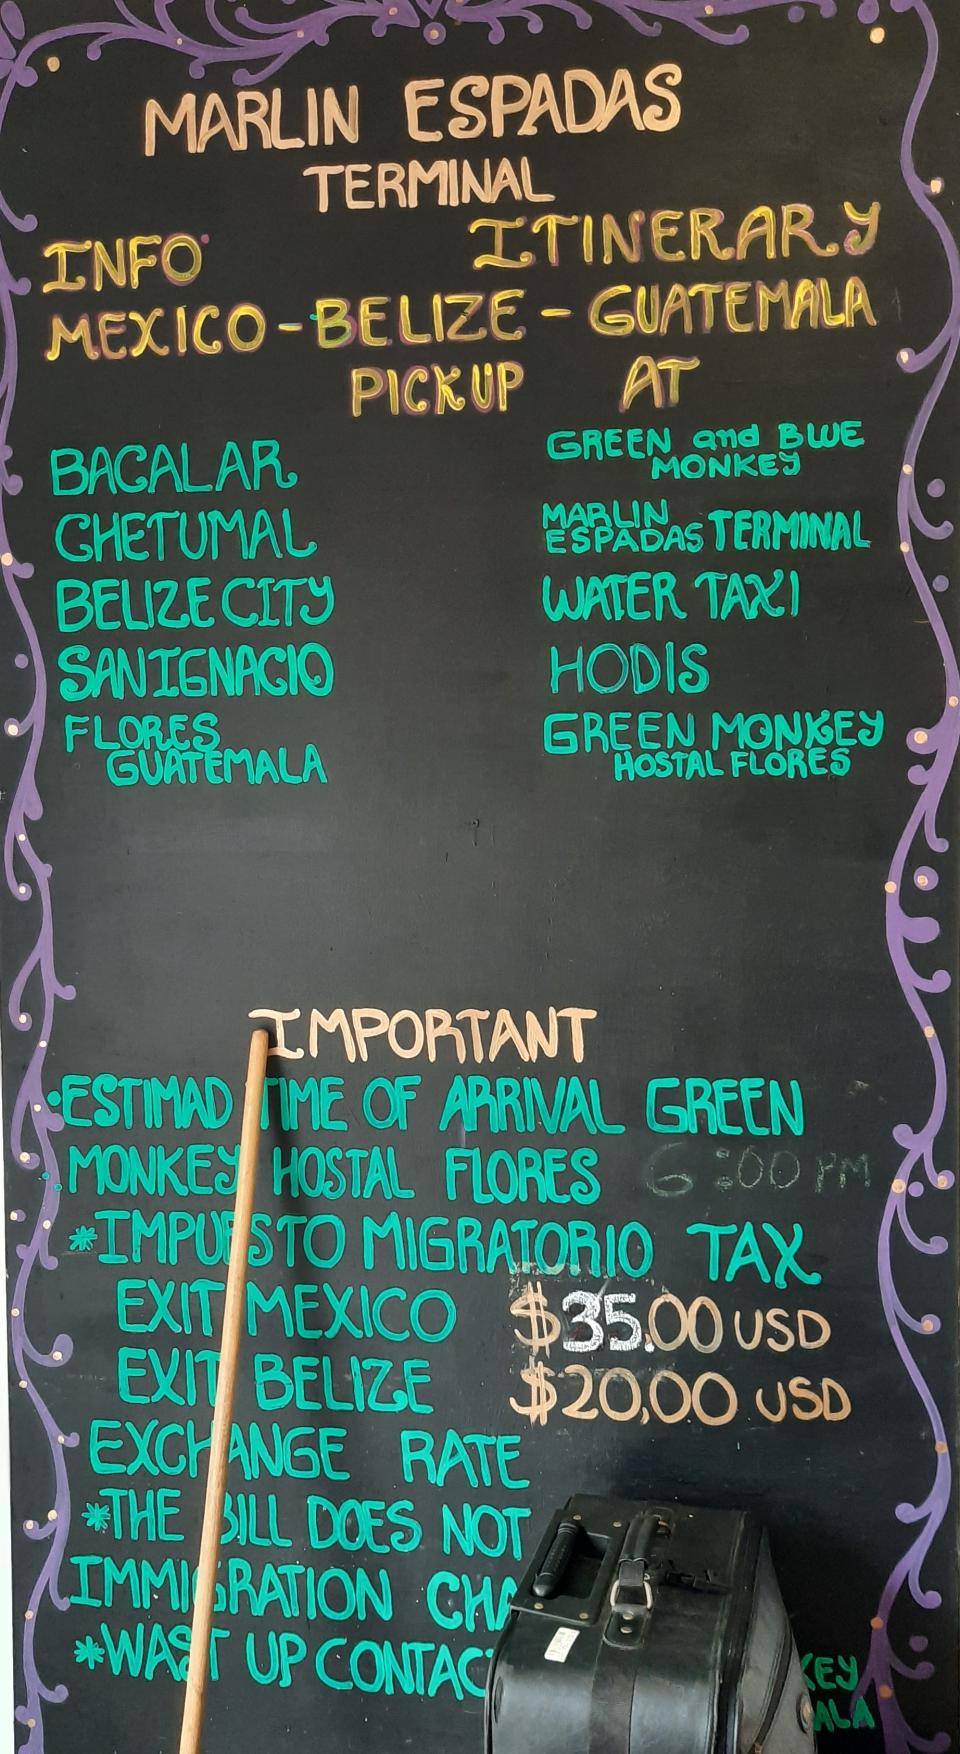 MARLIN ESPADAS
TERMINAL
INFO ITINERARY
MEXICO - BELIZE - GUATEMALA
PICKUP AT
BACALAR GREEN and BLUE MONKEY
CHETUMAL MARLIN ESPADAS TERMINAL
BELIZE CITY WATER TAXI
SAN IGNACIO HODIS
FLORES GUATEMALA GREEN MONKEY HOSTAL FLORES
IMPORTANT
•ESTIMAD TIME OF ARRIVAL GREEN
MONKEY HOSTAL FLORES 6:00 PM
*IMPUESTO MIGRATORIO TAX
EXIT MEXICO $35.00 USD
EXIT BELIZE $20,00 USD
EXCHANGE RATE
*THE BILL DOES NOT
IMMIGRATION
*WAST UP